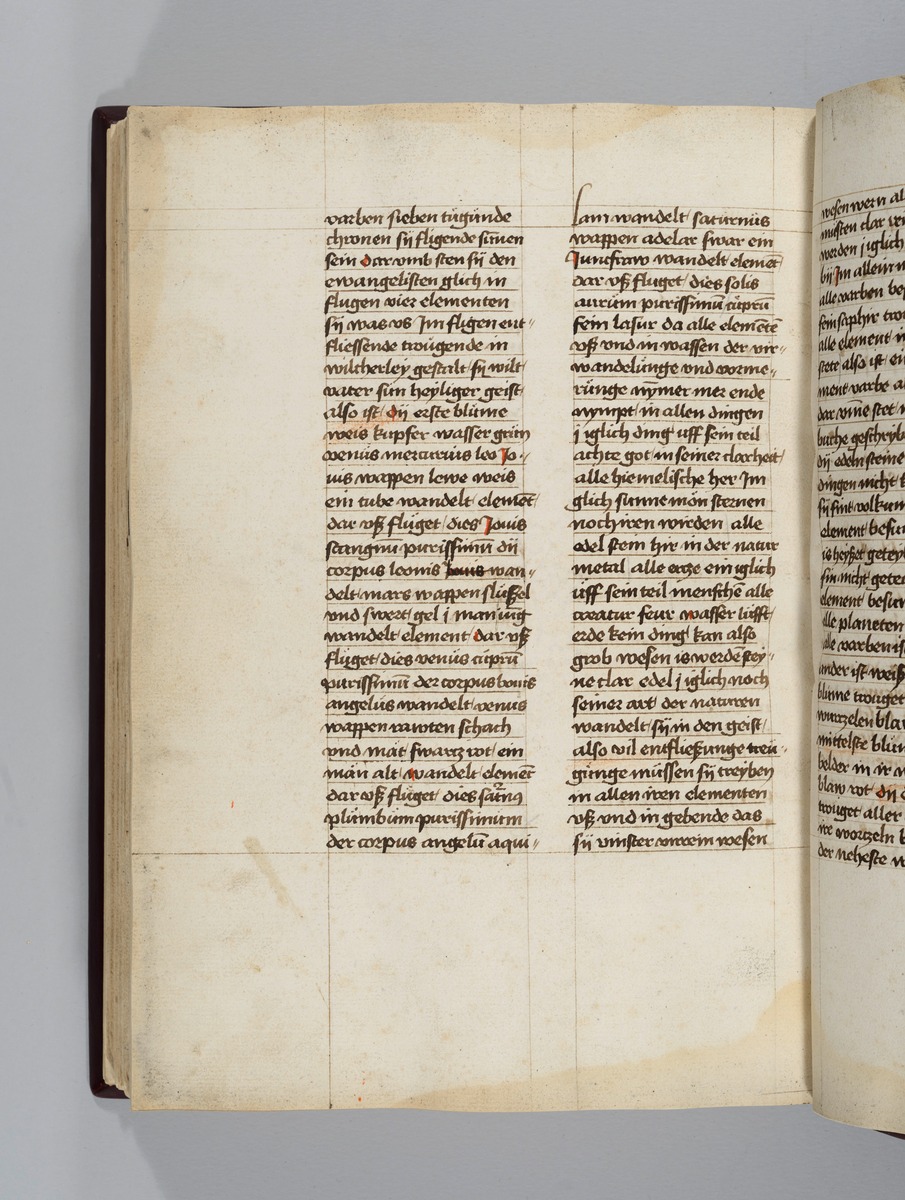 varben sieben tugunde
chronen sij fligende sunen
sein dar vmb sten sij den
ewangelisten glich in
flugen vier elementen
sij was vs Jm fligen ent〃
fliessende trougende in
wilcherley gestalt sij wilt
vater sun heyliger geist
also ist dij erste blume
weis kupfer wasser grün
venus mercurius leo Jo〃
uis wappen lewe weis
ein tube wandelt element
dar vß fluget dies Jouis
stangnum purissimum dij
corpus leonis Jouis wan〃
delt mars wappen slussel
vnd swert gel j man iung
wandelt element dar vß
fluget dies venus cuprum̄
purissimū der corpus bouis
angelus wandelt venus
wappen rawten schach
vnd mat swartz rot ein
man alt wandelt element
dar vß fluget dies
plumbum purissimum
der corpus angelū aqui〃
lam wandelt saturnus
wappen adelar swar ein
Junefraw wandelt element
dar vß fluget dies solis
aurum purissimū cuprū
fein lasur da alle elemēte
vß vnd in wassen der vir〃
wandelunge vnd vorme〃
runge nymer mer ende
nympt in allen dingen
j iglich ding uff sein teil
achte got in seiner clarheit
alle hiemelische her Jm
glich sunne mon sternen
noch iren wirden alle
edel stein hir in der natur
metal alle ertze ein iglich
uff sein teil menschē alle
creatur feur wasser lufft
erde kein ding kan also
grob wesen is werdē stey〃
ne clar edel j iglich noch
seiner art der naturen
wandelt sij in den geist
also vil entfließunge treu〃
gunge müssen sij treyben
in allen iren elementen
vß vnd in gebende das
sij vinster vnrein wesen
wesen wern
clar
werden j iglich
bij Jm allein
alle varben
fein saphir
alle element
stete also ist
ment varbe
dar stet
buche geschrib
dij edeln steine
dingen nicht
sij sint volkum
element
is heyßet
nicht
element
alle planeten
alle varben
ander ist weiß
blume trouget
wurtzelen blaw
mittelste
in ir
blaw rot dij
trouget aller
ire wortzeln
der neheste